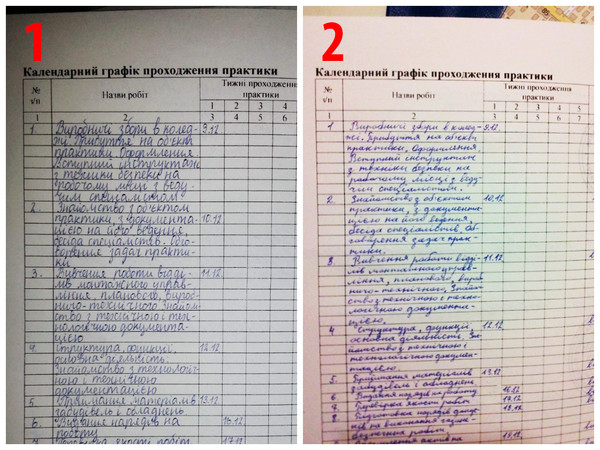 1
Календарний графік проходження практики
№ з/п
Назви робіт
Тижні проходження практики
1 2 3 4
1 2 3 4 5 6
1. Виробничі збори в колед- 9.12.
жі. Прибуття на об'єкт
практики. Оформлення.
Вступний інструктаж
з техніки безпеки на
робочому місці з веду-
чим спеціалістом
2. Знайомство з об'єктом 10.12.
практики, з документа-
цією на його ведення,
бесіда спеціалістів. Обго-
ворення задач практи-
ки
3. Вивчання роботи відді- 11.12.
лів монтажного управ-
ління, планового, вироб-
ничо-технічного. Знайом-
ство з технічною і тех-
нологічною документа-
цією
4. Структура, функції, 12.12
основна діяльність.
Знайомство з технологіч-
ною і технічною
документацією
5. Приймання матеріалів 13.12.
6. на
роботу 16.12.
17.12
2
Календарний графік проходження практики
№ з/п
Назви робіт
Тижні проходження практики
1 2 4 5
1 2 3 4 5 6 7
1 Виробничі збори в колед- 9.12.
жі. Прибуття на об'єкт
практики. Оформлення.
Вступний інструктаж
з техніки безпеки на
робочому місці з веду-
чим спеціалістом.
2. Знайомство з об'єктом 10.12
практики, з документа-
цією на його ведення,
бесіда спеціалістів. Об-
говорення задач прак-
тики.
3 Вивчення роботи відді- 11.12
лів монтажного управ-
ління, планового, вироб-
ничо-технічного. Знайом-
ство з технічною і техно-
логічною документа-
цією.
4 Структура, функції, 12.12
основна діяльність. Зна-
йомство з технічною і
технологічною докумен-
тацією.
5. Приймання матеріалів 13.12
6 16.12
7 Перевірка якості робіт 17.12
8 Підготовка нарядів 18.12
на виконання
робіт
19.12.